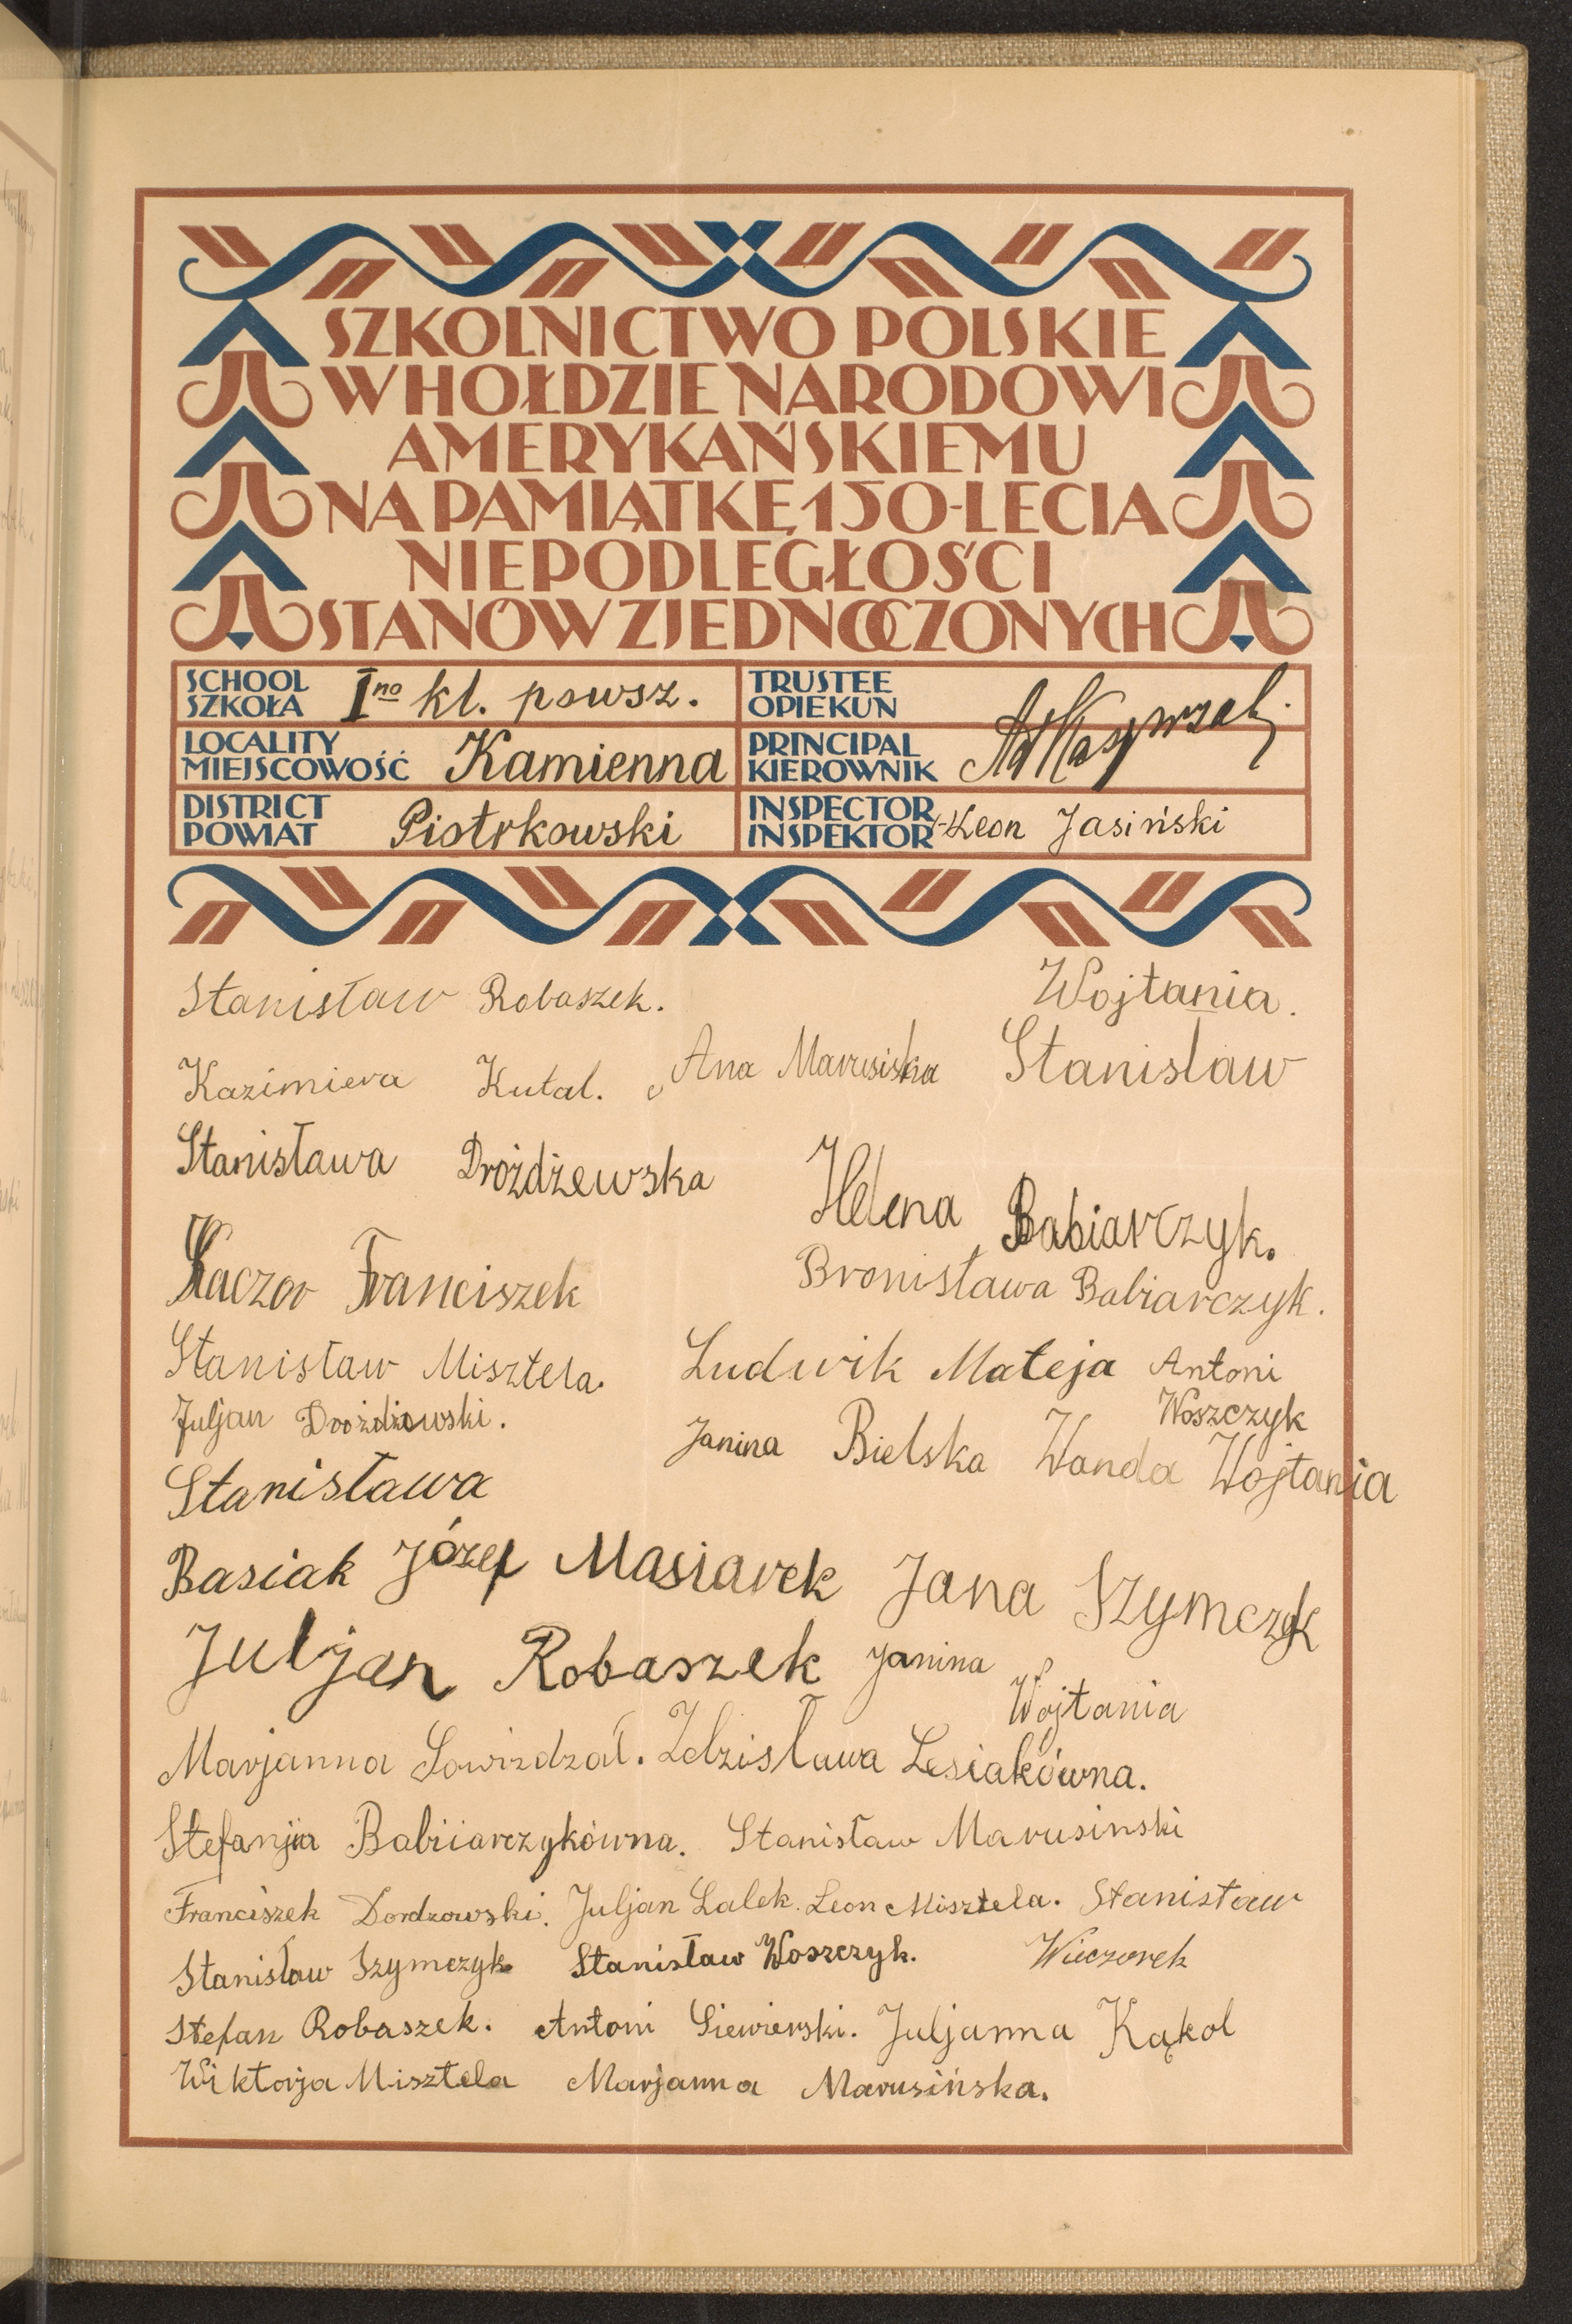 SZKOLNICTWO POLSKIE
W HOŁDZIE NARODOWI
AMERYKAŃSKIEMU
NA PAMIĄTKĘ 150-LECIA
NIEPODLEGŁOŚCI
STANÓW ZJEDNOCZONYCH
SCHOOL
SZKOŁA
I no kl. powsz.
TRUSTEE
OPIEKUN
LOCALITY
MIEJSCOWOŚĆ
Kamienna
PRINCIPAL
KIEROWNIK
DISTRICT
POWIAT
Piotrkowski
INSPECTOR
INSPEKTOR
Leon Jasiński
Stanisław Robaszek.
Wojtania.
Kazimiera Kutal. Ana Marusiska Stanislaw
Stanisława Drożdżewska
Helena Babiarczyk.
Kaczor Franciszek
Bronisława Babiarczyk.
Stanisław Misztela. Ludwik Mateja Antoni
Woszczyk
Juljan Drożdżowski.
Janina Bielska Wanda Wojtania
Stanisława
Basiak Józef Masiarek Jana Szymczyk
Juljan Robaszek Janina
Wojtania
Marjanna Sowizdzał. Zdzisława Lesiakówna.
Stefanja Babiiarczykówna. Stanisław Marusinski
Franciszek Dordzowski. Juljan Lalek. Leon Misztela. Stanisław
Wieczorek
Stanisław Szymczyk Stanisław Woszczyk.
Stefan Robaszek. Antoni Siewierski. Juljanna Kąkol
Wiktorja Misztela Marjanna Marusińska.